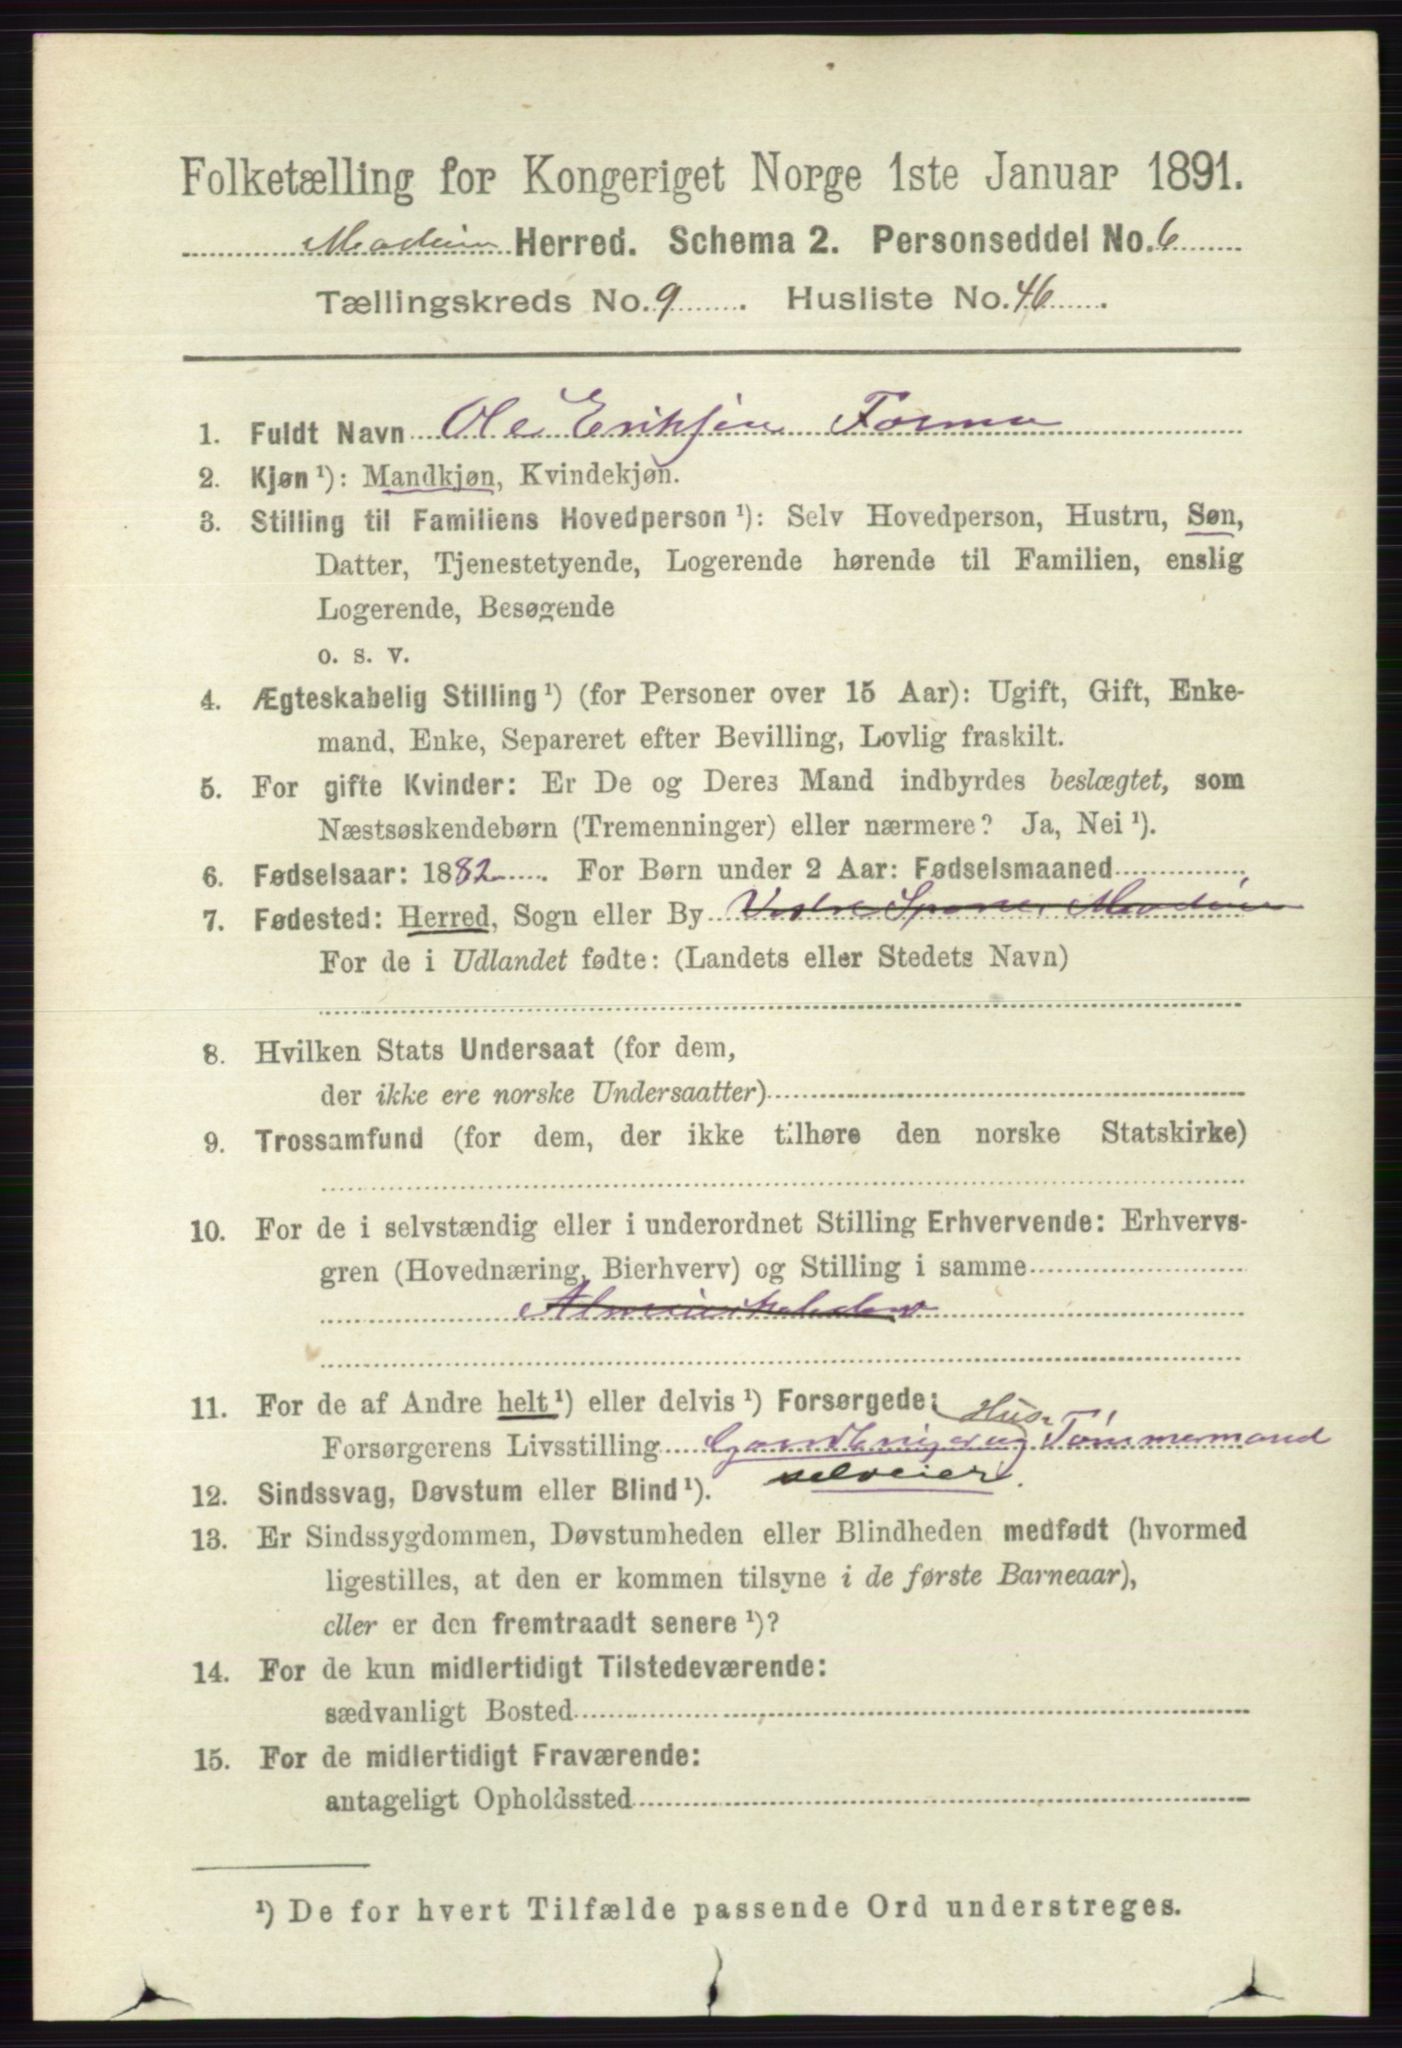 Folketælling for Kongeriget Norge 1ste Januar 1891.
Modum Herred. Schema 2. Personseddel No. 6
Tællingskreds No. 9. Husliste No. 46.
1. Fuldt Navn Ole Eriksen Formo
2. Kjøn ¹): Mandkjøn, Kvindekjøn.
3. Stilling til Familiens Hovedperson ¹): Selv Hovedperson, Hustru, Søn,
Datter, Tjenestetyende, Logerende hørende til Familien, enslig
Logerende, Besøgende
o. s. v.
4. Ægteskabelig Stilling ¹) (for Personer over 15 Aar): Ugift, Gift, Enke-
mand, Enke, Separeret efter Bevilling, Lovlig fraskilt.
5. For gifte Kvinder: Er De og Deres Mand indbyrdes beslægtet, som
Næstsøskendebørn (Tremenninger) eller nærmere? Ja, Nei ¹).
6. Fødselsaar: 1882. For Børn under 2 Aar: Fødselsmaaned
7. Fødested: Herred, Sogn eller By Vestre Spone Modum
For de i Udlandet fødte: (Landets eller Stedets Navn)
8. Hvilken Stats Undersaat (for dem,
der ikke ere norske Undersaatter)
9. Trossamfund (for dem, der ikke tilhøre den norske Statskirke)
10. For de i selvstændig eller i underordnet Stilling Erhvervende: Erhvervs-
gren (Hovednæring, Bierhverv) og Stilling i samme
11. For de af Andre helt ¹) eller delvis ¹) Forsørgede:
Hus
Forsørgerens Livsstilling og Tømmermand
selveier.
12. Sindssvag, Døvstum eller Blind ¹).
13. Er Sindssygdommen, Døvstumheden eller Blindheden medfødt (hvormed
ligestilles, at den er kommen tilsyne i de første Barneaar),
eller er den fremtraadt senere ¹)?
14. For de kun midlertidigt Tilstedeværende:
sædvanligt Bosted
15. For de midlertidigt Fraværende:
antageligt Opholdssted
¹) De for hvert Tilfælde passende Ord understreges.